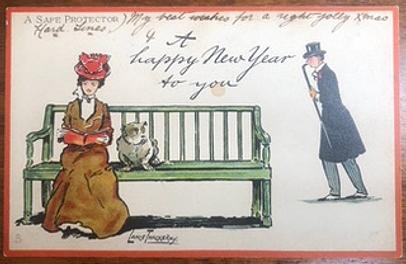 A SAFE PROTECTOR) My best wishes for a right jolly Xmas
Hard Lines.
& A
happy New Year
to you
LANCE THACKERAY